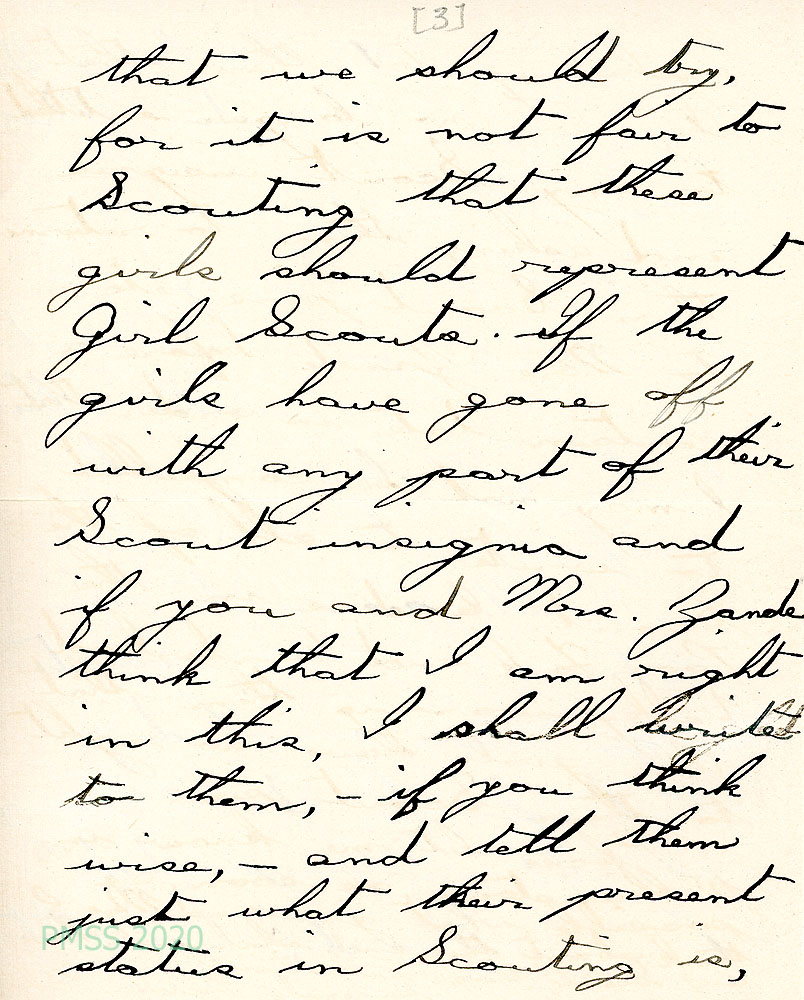 [3]
that we should try,
for it is not fair to
Scouting that these
girls should represent
Girl Scouts. If the
girls have gone off
with any part of their
Scout insignia and
if you and Mrs. Zande
think that I am right
in this, I shall write
to them, – if you think
wise, – and tell them
just what their present
status in Scouting is,
PMSS 2020